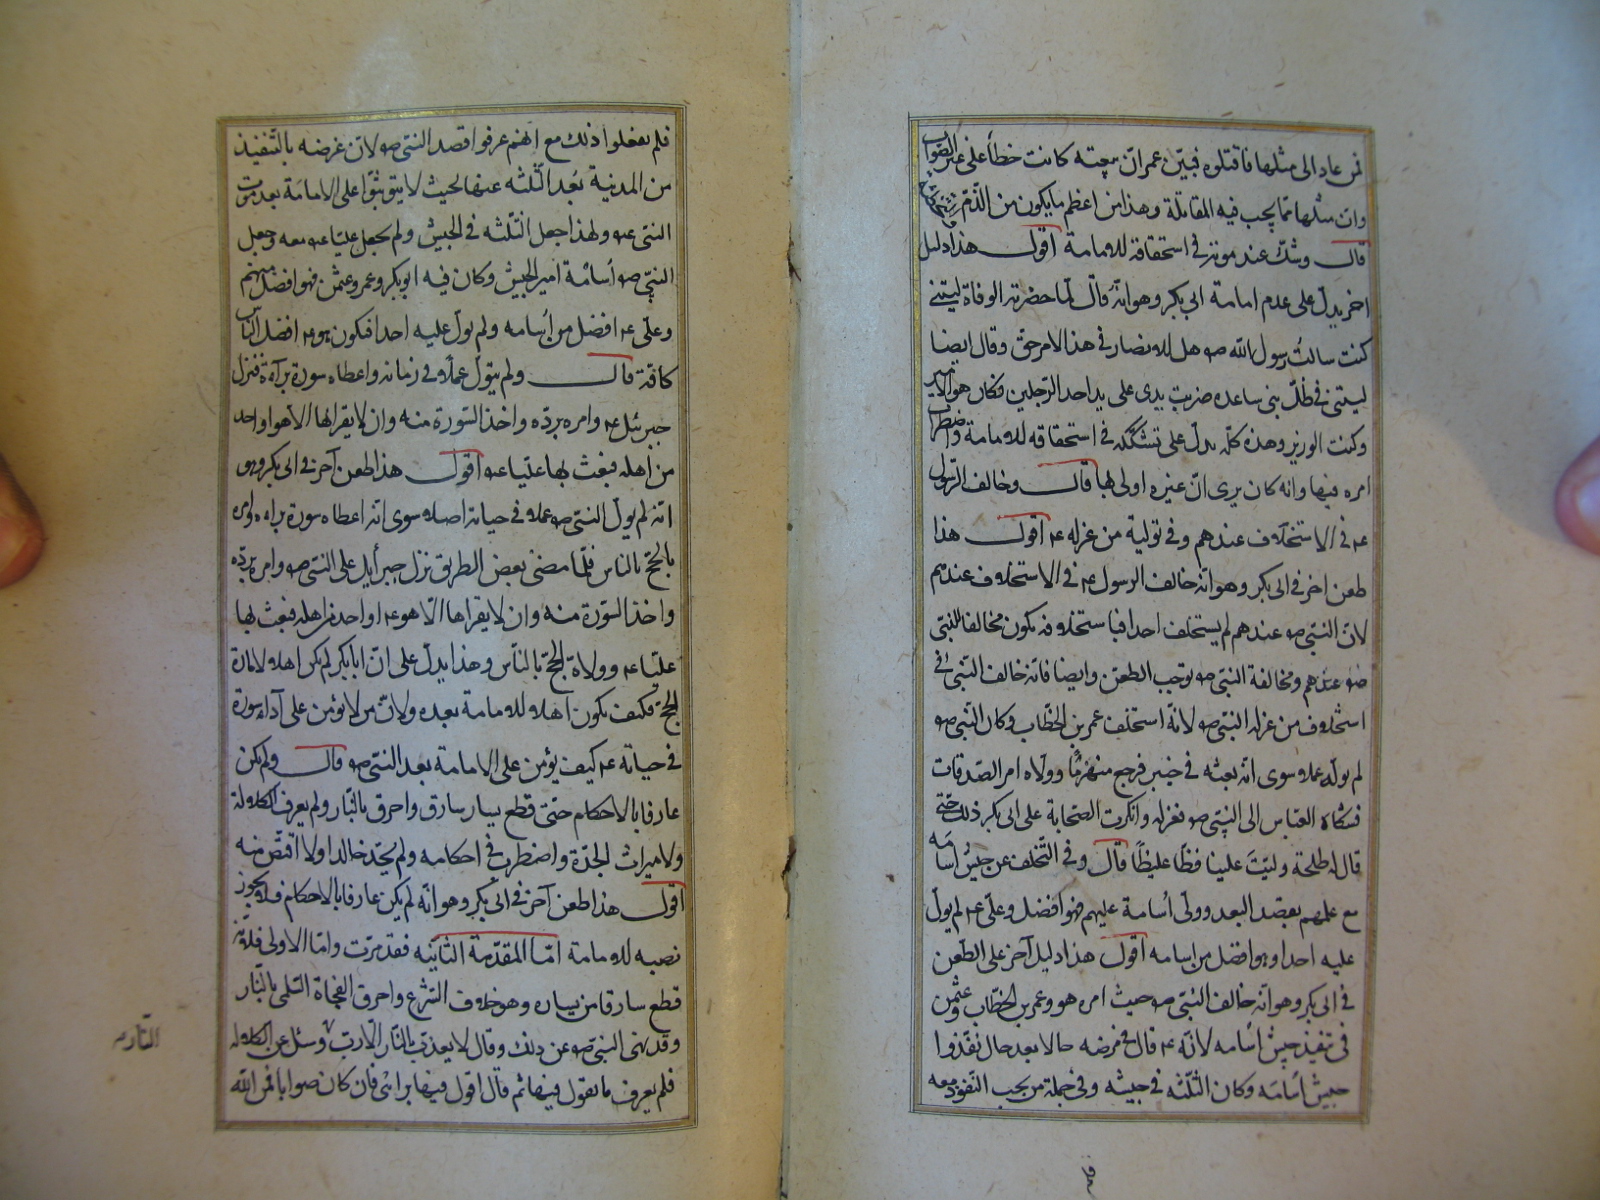 فمن عاد الى مثلها فاقتلوه فبيّن عمر انّ بيعته كانت خطأ على غير الصّواب
وانّ مثلها ممّا يجب فيه المقاتلة وهذا من اعظم ما يكون من الذّمّ
قال وشكّ عند موته في استحقاقه للامامة اقول هذا دليل
اخر يدلّ على عدم امامة ابي بكر وهو انّه قال لمّا حضرته الوفاة ليتني
كنت سالتُ رسول الله صه هل للانصار في هذا الامر حق وقال ايضا
ليتني في ظلّ بني ساعده ضربت يدي على يد احد الرّجلين فكان هو الامير
وكنت الوزير وهذه كلّه يدلّ على تشكّكه في استحقاقه للامامة واضطراب
امره فيها وانه كان يرى انّ غيره اولى بها قال وخالف الرّسول
عه في الاستخلاف عندهم وفي تولية من عزله عه اقول هذا
طعن اخر في ابي بكر وهو انّه خالف الرسول عه في الاستخلاف عندهم
لانّ النبي صه عندهم لم يستخلف احدا فباستخلافه يكون مخالفا للنبّي
صه عندهم ومخالفة النبّي صه توجب الطعن وايضا فانّه خالف النّبي في
استخلاف من عزله النبّي صه لانّه استخلف عمر بن الخطّاب وكان النّبي صه
لم يولّه عملا سوى انّه بعثه في خيبر فرجع منهزمًا وولّاه امر الصّدقات
فشكاه العبّاس الى النبّي صه فعزله وانكرت الصّحابة على ابي بكر ذلك حتى
قال له طلحة ولّيتَ علينا فظّا غليظًا قال وفي التّخلف عن جيش اسامه
مع علمهم بقصد البعد وولّى اُسامة عليهم فهو افضل وعلى عه لم يولّ
عليه احدا وهو افضل من اسامه اقول هذا دليل آخر على الطّعن
في ابي بكر وهو انّه خالف النبّي صه حيث امره هو وعمر بن الخطّاب وعثمن
في تنفيذ جيش اُسامه لانّه عه قال في مرضه حالا بعد حال نفّذوا
جيش اُسامَه وكان الثّلثه في جيشه وفي جملة من يجب النّفوذ معه
فلم يفعلوا ذلك مع انّهم عرفوا قصد النبّي صه لانّ غرضه بالتّنفيذ
من المدينة بُعد الثّلثه عنها بحيث لا يتوثّبوا على الامامَة بعد موت
النبّي عه ولهذا جعل الثّلثه في الجيش ولم يجعل عليّا عه معه وجعل
النبّي صه اُسامَة امير الجيش وكان فيه ابو بكر وعمر وعثمن فهو افضل منهم
وعلى عه افضل من اُسامه ولم يولّ عليه احدا فيكون هو عه افضل النّاس
كافّة قال ولم يتولّ عملًا في زمانه واعطاه سورة براءة فنزل
جبرئيل عه وامره بردّه واخذ السّورة منه وان لا يقراها الّا هو او احد
من اهله فبعث بها عليّا عه اقول هذا طعن آخر في ابي بكر وهو
انّه لم يولّ النبّي صه عملا في حياته اصلا سوى انّه اعطاه سورة براءه وامره
بالحجّ بالناس فلمّا مضى بعض الطريق نزل جبرأيل على النبّي صه وامره بردّه
واخذ السّورة منه وان لا يقراها الّا هو عه او احد من اهله فبعث بها
عليّا عه وولّاه الحجّ بالنّاس وهذا يدلّ على انّ ابا بكر لم يكن اهلا لامارة
الحجّ فكيف يكون اهلا للامامة بعده ولانّ من لا يؤمن على آداء سورة
في حياته عه كيف يؤمن على الامامة بعد النبّي صه قال ولم يكن
عارفا بالاحكام حتّى قطع يسار سارق واحرق بالنّار ولم يعرف الكلالة
ولا ميراث الجدّة واضطرب في احكامه ولم يحدّ خالدا ولا اقتصّ منه
اقول هذا طعن آخر في ابي بكر وهو انّه لم يكن عارفا بالاحكام فلا يجوز
نصبه للامامة امّا المقدّمة الثانيّه فقد مرّت وامّا الاولى فلانّه
قطع سارقا من يساره وهو خلاف الشّرع واحرق الفجاة السّلمى بالنّار
وقد نهى النبّي صه عن ذلك وقال لا يعذّب بالنّار الّا ربّ وسئل عن الكلالة
فلم يعرف ما يقول فيها ثم قال اقول فيها برائى فان كان صوابا فمن الله